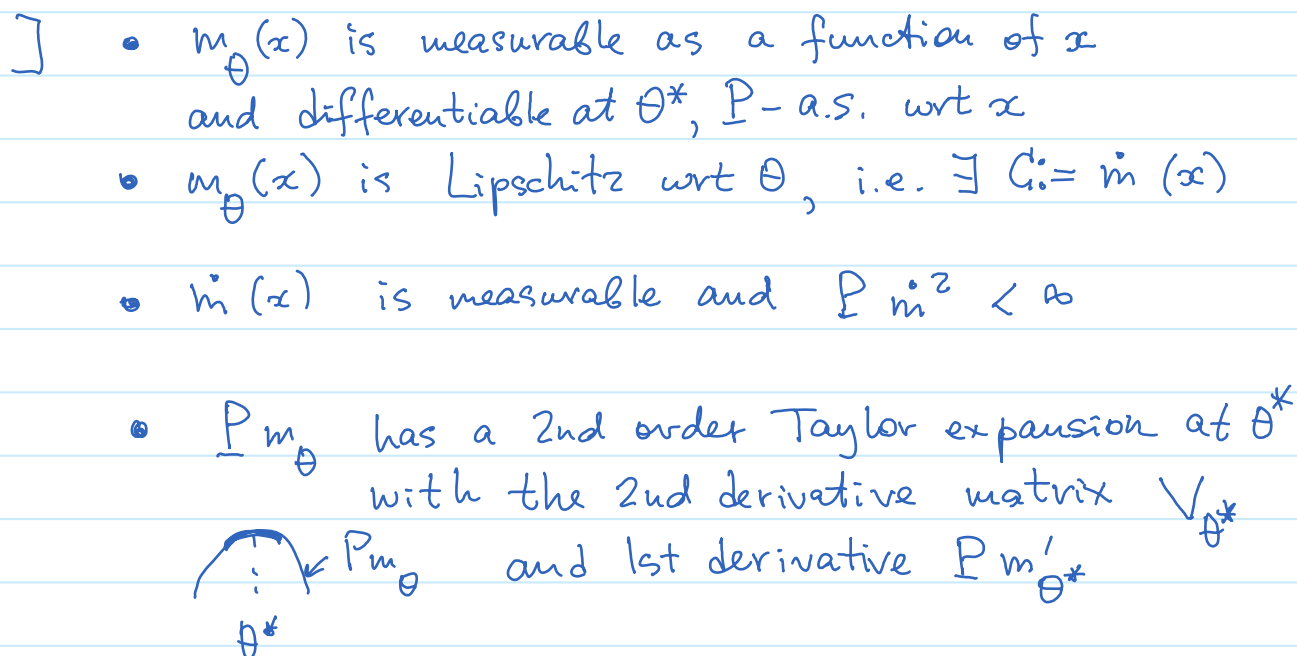 ] • m_θ(x) is measurable as a function of x
and differentiable at θ*, P - a.s. wrt x
• m_θ(x) is Lipschitz wrt θ, i.e. ∃ C := ṁ(x)
• ṁ(x) is measurable and P ṁ² < ∞
• P m_θ has a 2nd order Taylor expansion at θ*
with the 2nd derivative matrix V_θ*
P m_θ and 1st derivative P m'_θ*
θ*